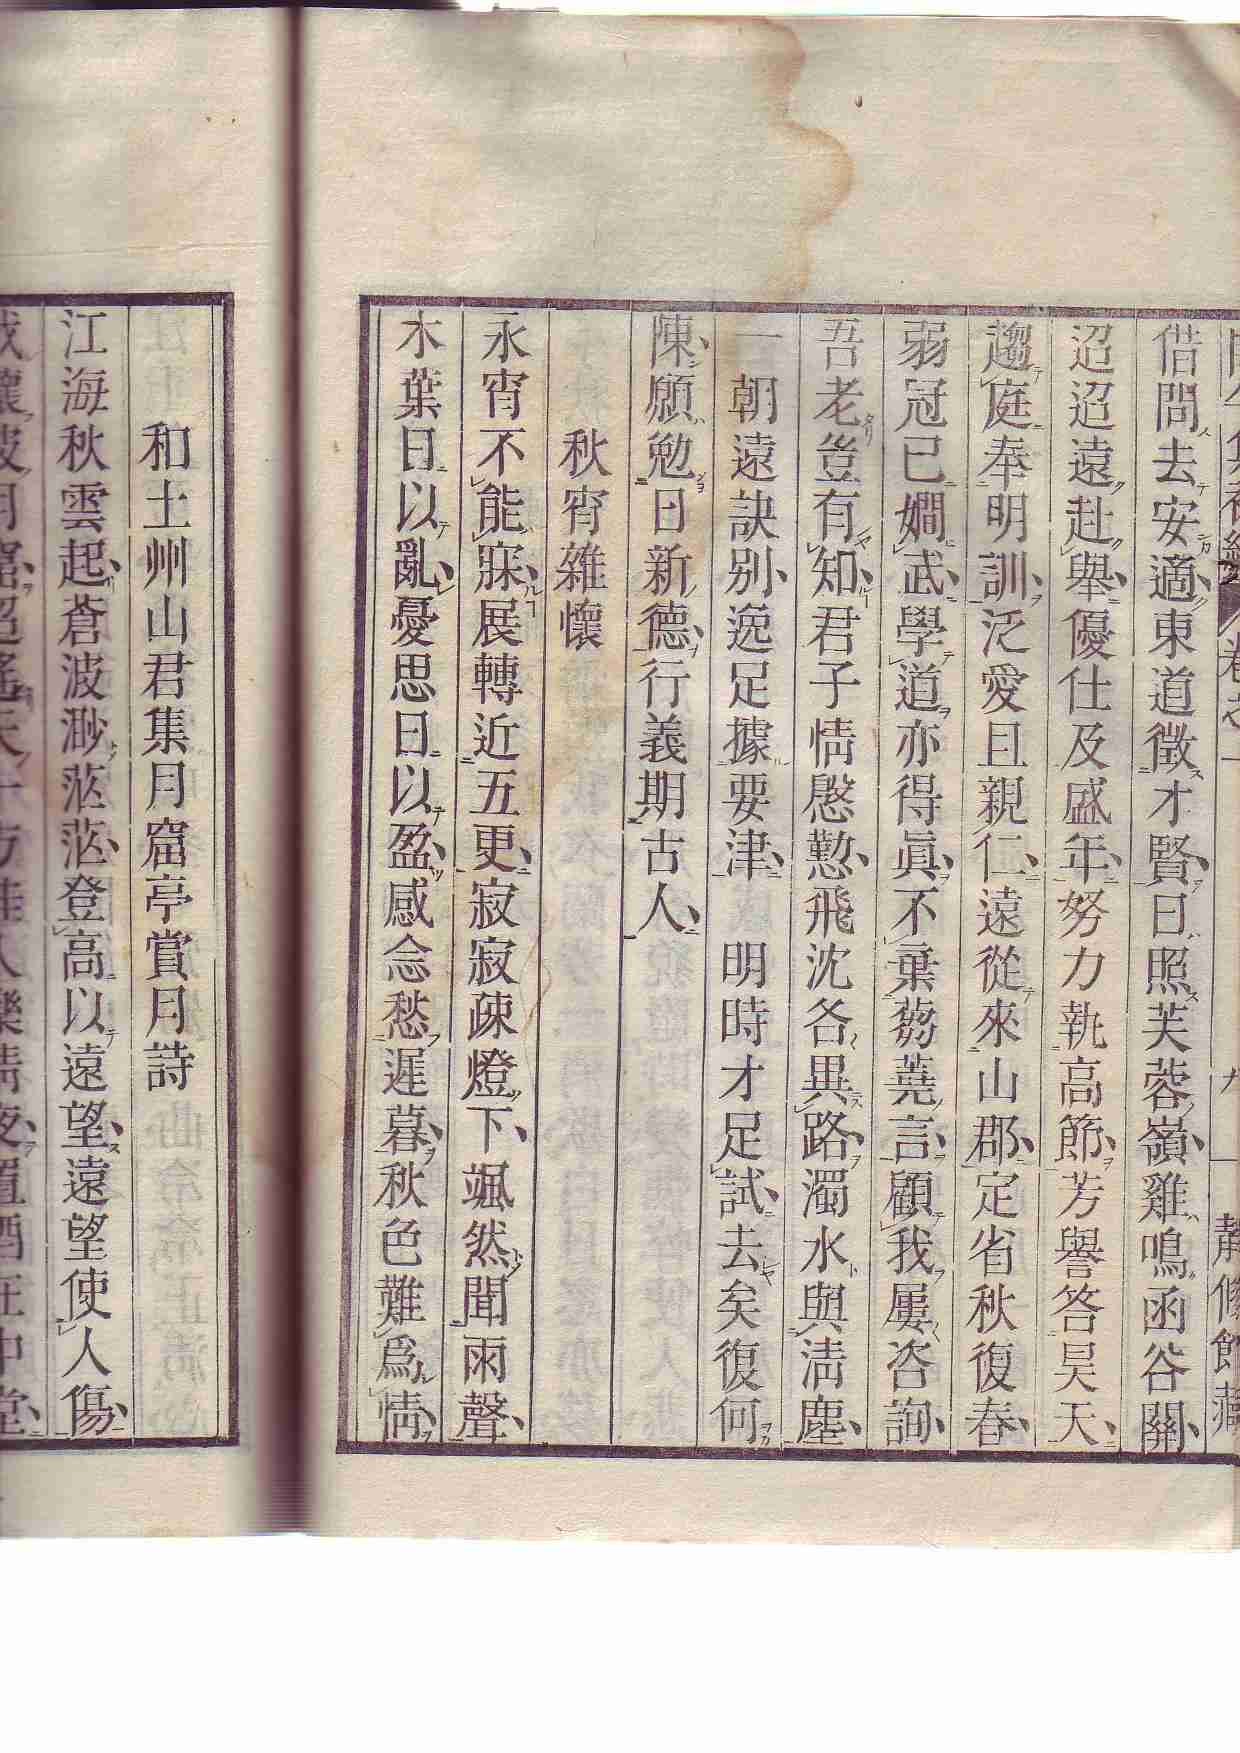 卷之一 九 靜脩館藏
借問去安適東道徵才賢日照芙蓉嶺雞鳴函谷關
迢迢遠赴擧優仕及盛年努力執高節芳譽答昊天
趨庭奉明訓泛愛且親仁遠從來山郡定省秋復春
弱冠已嫺武學道亦得眞不棄蒭蕘言顧我屢咨詢
吾老豈有知君子情慇懃飛沈各異路濁水與淸塵
一朝遠訣別逸足據要津 明時才足試去矣復何
陳願勉日新德行義期古人
秋宵雜懷
永宵不能寐展轉近五更寂寂疎燈下颯然聞雨聲
木葉日以亂憂思日以盈感念愁遲暮秋色難爲情
和土州山君集月窟亭賞月詩
江海秋雲起蒼波渺茫茫登高以遠望遠望使人傷